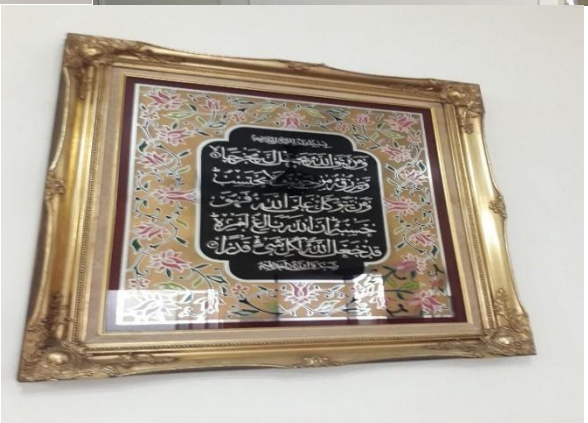 بسم الله الرحمن الرحيم
ومن يتق الله يجعل له مخرجا
ويرزقه من حيث لا يحتسب
ومن يتوكل على الله فهو
حسبه إن الله بالغ أمره
قد جعل الله لكل شيء قدرا